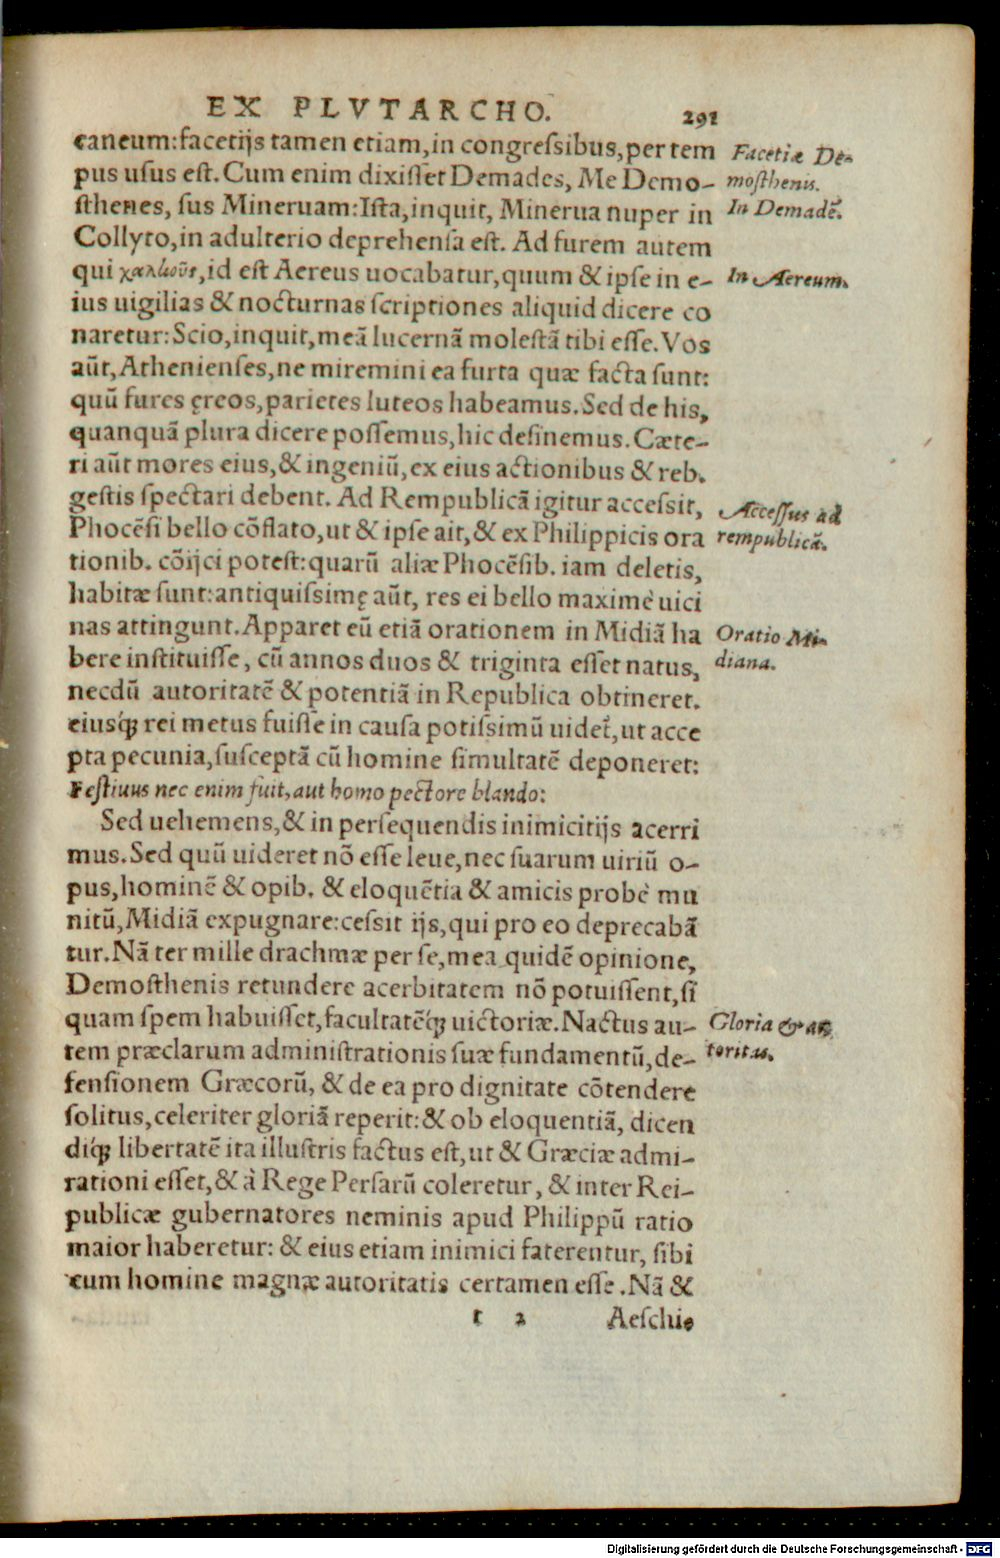 EX PLVTARCHO. 291
taneum: facetijs tamen etiam, in congressibus, per tem
pus usus est. Cum enim dixisset Demades, Me Demo-
sthenes, sus Mineruam: Ista, inquit, Minerua nuper in
Collyto, in adulterio deprehensa est. Ad furem autem
qui χαλκοῦς, id est Aereus uocabatur, quum & ipse in e-
ius uigilias & nocturnas scriptiones aliquid dicere co
naretur: Scio, inquit, meã lucernã molestã tibi esse. Vos
aũt, Athenienses, ne miremini ea furta quæ facta sunt:
quũ fures ęreos, parietes luteos habeamus. Sed de his,
quanquã plura dicere possemus, hic desinemus. Cæte-
ri aũt mores eius, & ingeniũ, ex eius actionibus & reb.
gestis spectari debent. Ad Rempublicã igitur accessit,
Phocẽsi bello cõflato, ut & ipse ait, & ex Philippicis ora
tionib. cõijci potest: quarũ aliæ Phocẽsib. iam deletis,
habitæ sunt: antiquissimę aũt, res ei bello maximè uici
nas attingunt. Apparet eũ etiã orationem in Midiã ha
bere instituisse, cũ annos duos & triginta esset natus,
necdũ autoritatẽ & potentiã in Republica obtineret.
eiusq́; rei metus fuisse in causa potissimũ uidet̃, ut acce
pta pecunia, susceptã cũ homine simultatẽ deponeret:
Festiuus nec enim fuit, aut homo pectore blando:
Sed uehemens, & in persequendis inimicitijs acerri
mus. Sed quũ uideret nõ esse leue, nec suarum uiriũ o-
pus, hominẽ & opib. & eloquẽtia & amicis probè mu
nitũ, Midiã expugnare: cessit ijs, qui pro eo deprecabã
tur. Nã ter mille drachmæ per se, mea quidẽ opinione,
Demosthenis retundere acerbitatem nõ potuissent, si
quam spem habuisset, facultatẽq́; uictoriæ. Nactus au-
tem præclarum administrationis suæ fundamentũ, de-
fensionem Græcorũ, & de ea pro dignitate cõtendere
solitus, celeriter gloriã reperit: & ob eloquentiã, dicen
diq́; libertatẽ ita illustris factus est, ut & Græciæ admi-
rationi esset, & à Rege Persarũ coleretur, & inter Rei-
publicæ gubernatores neminis apud Philippũ ratio
maior haberetur: & eius etiam inimici faterentur, sibi
cum homine magnæ autoritatis certamen esse. Nã &
t 2 Aeschi-
Facetiæ De-
mosthenis.
In Demadẽ.
In Aereum.
Accessus ad
rempublicã.
Oratio Mi-
diana.
Gloria & au
toritas.
Digitalisierung gefördert durch die Deutsche Forschungsgemeinschaft - DFG